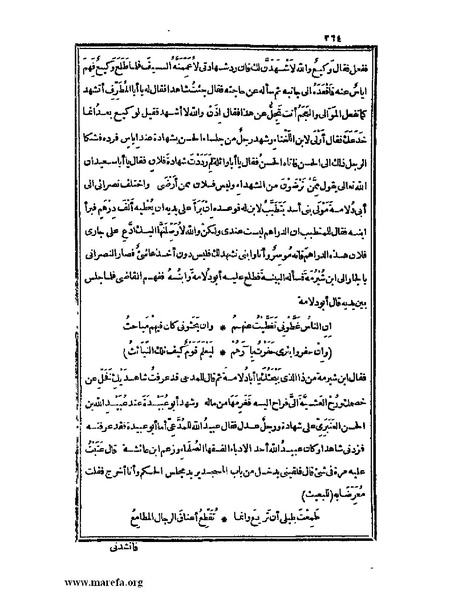 ٢٦٤
ففعل فقال وكيع والله لأشهدن لك فان رد شهادتى لأعممنه السيف فلما طلع وكيع فهم
اياس عنه فأقعده الى جانبه ثم سأله عن حاجته فقال جئت شاهدا فقال يا أبا المطرف أتشهد
كما تفعل الموالى والعجم أنت تجل عن هذا فقال اذن والله لا أشهد فقيل لوكيع بعد انما
خدعك فقال أولى لابن اللخناء وشهد رجل من جلساء الحسن بشهادة عند اياس فرده فشكا
الرجل ذلك الى الحسن فأتاه الحسن فقال يا أبا واثلة لم رددت شهادة فلان فقال يا أبا سعيد ان
الله تعالى يقول ممن ترضون من الشهداء وليس فلان ممن أرضى واختلف نصرانى الى
أبى دلامة مولى بنى أسد يتطبب لابن له فوعده ان برأ على يديه ان يعطيه ألف درهم فبرأ
ابنه فقال للمتطبب ان الدراهم ليست عندى ولكن والله لأوصلنها اليك ادع على جارى
فلان هذه الدراهم فانه موسر وأنا وابنى نشهد لك فليس دون أخذها شئ فصار النصرانى
بالجار الى ابن شبرمة فسأله البينة فطلع عليه أبو دلامة وابنه ففهم القاضى فلما جلس
بين يديه قال أبو دلامة
ان الناس غطونى تغطيت عنهم * وان بحثونى كان فيهم مباحث
(وان حفروا بئرى حفرت بآرهم * ليعلم قوم كيف تلك النبائث)
فقال ابن شبرمة من ذا الذى يبحثك يا أبا دلامة ثم قال للمدعى قد عرفت شاهديك فخل عن
خصمك ورح العشية الىّ فراح اليه فغرمها من ماله وشهد أبو عبيدة عند عبيد الله بن
الحسن العنبرى على شهادة ورجل عدل فقال عبيد الله للمدعى أما أبو عبيدة فقد عرفته
فزدنى شاهدا وكان عبيد الله أحد الادباء الفقهاء الصلحاء وزعم ابن عائشة قال عتبت
عليه مرة فى شئ قال فلقينى يدخل من باب المسجد يريد مجلس الحكم وأنا أخرج فقلت
معرضا به (للبعيث)
طمعت بليلى أن تريع وانما * تقطع أعناق الرجال المطامع
فأنشدنى
www.marefa.org